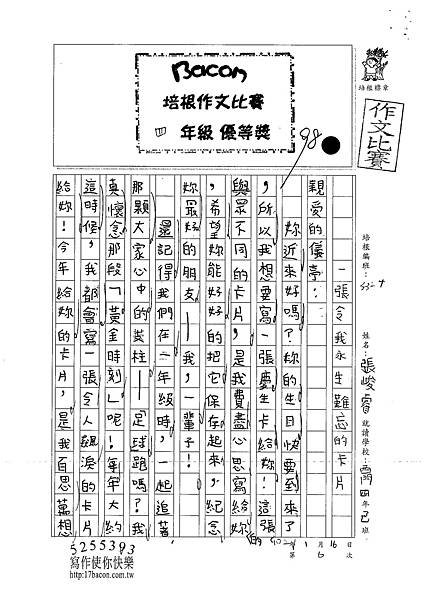 Bacon
培根作文比賽
四 年級 優等獎
98
培根標章
作文比賽
培根編班：
姓名：張峻睿
就讀學校：西四年己班
一張令我永生難忘的卡片
親愛的儀亭：
妳近來好嗎？妳的生日快要到來了
，所以我想要寫一張慶生卡給妳！這張
與眾不同的卡片，是我費盡心思寫給妳
，希望妳能好好的把它保存起來，紀念
妳最好的朋友——我，一輩子！
還記得我們在二年級時，一起追著
那顆大家心中的炎柱——足球跑嗎？我
真懷念那段「黃金時刻」呢！每年大約
這時候，我都會寫一張令人飆淚的卡片
給妳！今年給妳的卡片，是我百思萬想
1月16日
第6次
5255393
寫作使你快樂
17bacon.com.tw